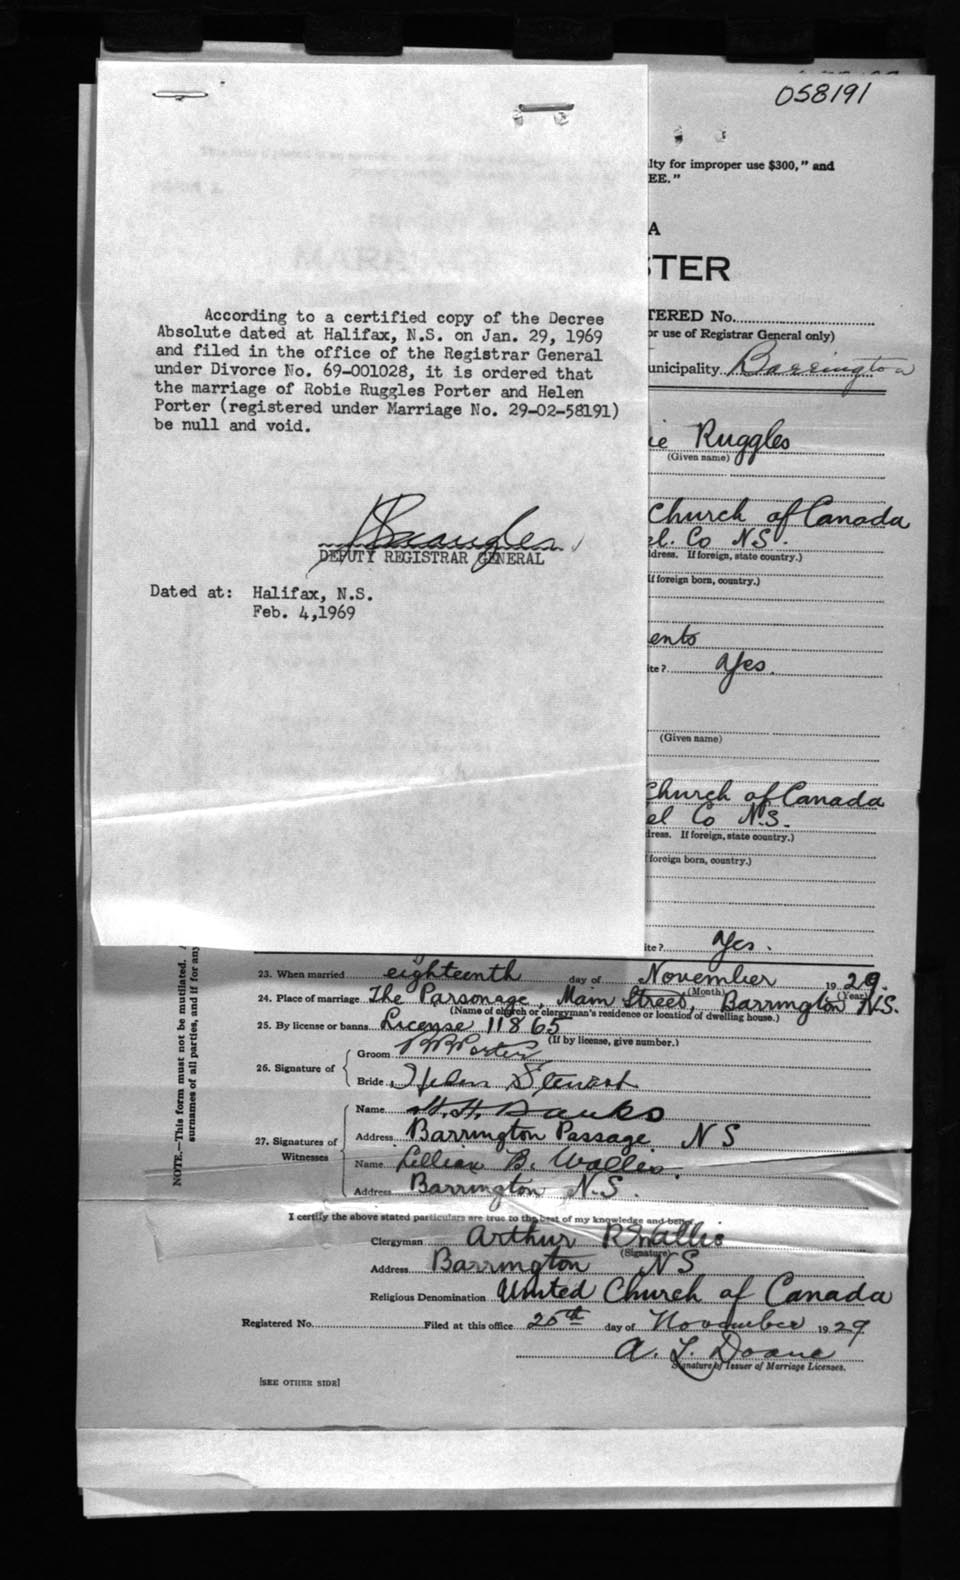 058191
lty for improper use $300," and
EE."
A
STER
TERED No.
or use of Registrar General only)
unicipality Barrington
ie Ruggles
(Given name)
Church of Canada
el. Co N.S.
ddress. If foreign, state country.)
If foreign born, country.)
ents
ite? Yes.
(Given name)
Church of Canada
el Co N.S.
dress. If foreign, state country.)
foreign born, country.)
ite? Yes.
According to a certified copy of the Decree
Absolute dated at Halifax, N.S. on Jan. 29, 1969
and filed in the office of the Registrar General
under Divorce No. 69-001028, it is ordered that
the marriage of Robie Ruggles Porter and Helen
Porter (registered under Marriage No. 29-02-58191)
be null and void.
DEPUTY REGISTRAR GENERAL
Dated at: Halifax, N.S.
Feb. 4,1969
NOTE.—This form must not be mutilated.
surnames of all parties, and if for any
23. When married eighteenth day of November 1929.
(Month) (Year)
24. Place of marriage The Parsonage, Main Street, Barrington N.S.
(Name of church or clergyman's residence or location of dwelling house.)
25. By license or banns License 11865
(If by license, give number.)
26. Signature of
Groom R R Porter
Bride Helen Stewart
27. Signatures of Witnesses
Name H. H. Banks
Address Barrington Passage N S
Name Lillian B. Wallis.
Address Barrington N.S.
I certify the above stated particulars are true to the best of my knowledge and belief.
Clergyman Arthur R Wallis
(Signature)
Address Barrington N S
Religious Denomination United Church of Canada
Registered No. Filed at this office 25th day of November 1929
A. L. Doane
Signature of Issuer of Marriage Licenses.
[SEE OTHER SIDE]